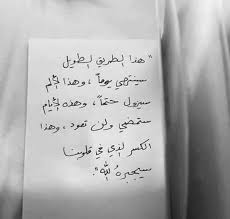 "هذا الطريق الطويل
سينتهي يوماً ، وهذا الألم
سيزول حتماً ، وهذه الأيام
ستمضي ولن تعود ، وهذا
الكسر الذي في قلوبنا
سيجبره الله".